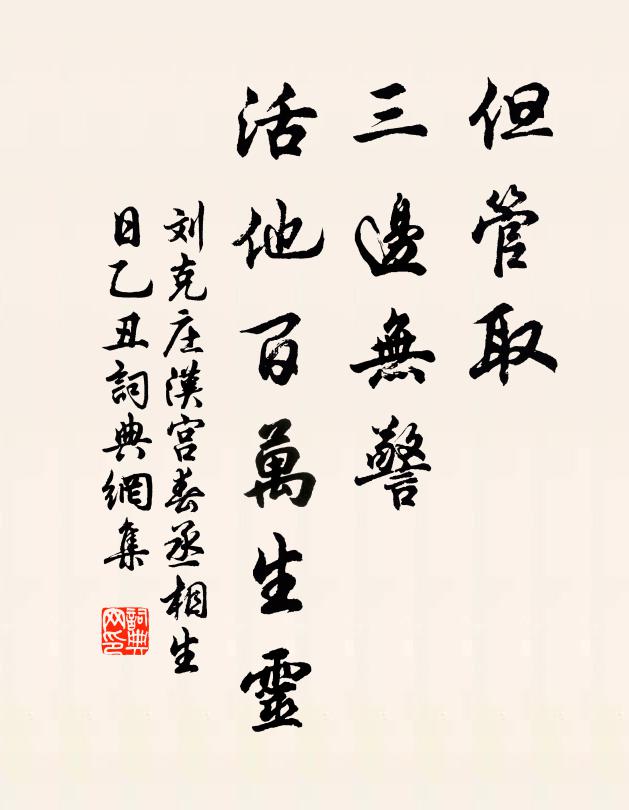 但管取
三邊無警
活他百萬生靈
刘克庄漢宮春丞相生
日乙丑詞典網集
詞典
网印